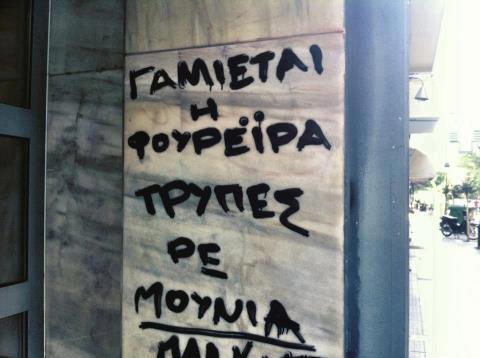 ΓΑΜΙΕΤΑΙ
Η
ΦΟΥΡΕΪΡΑ
ΤΡΥΠΕΣ
ΡΕ
ΜΟΥΝΙΑ